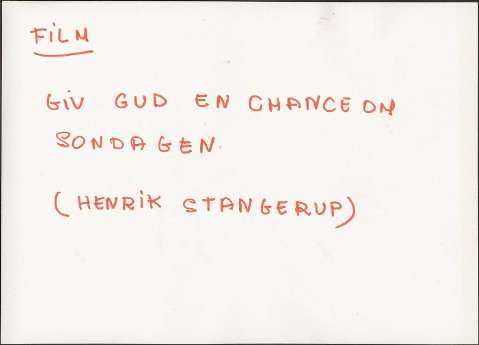 FiLM
GiV GUD EN CHANCE OM
SONDAGEN.
(HENRiK STANGERUP)